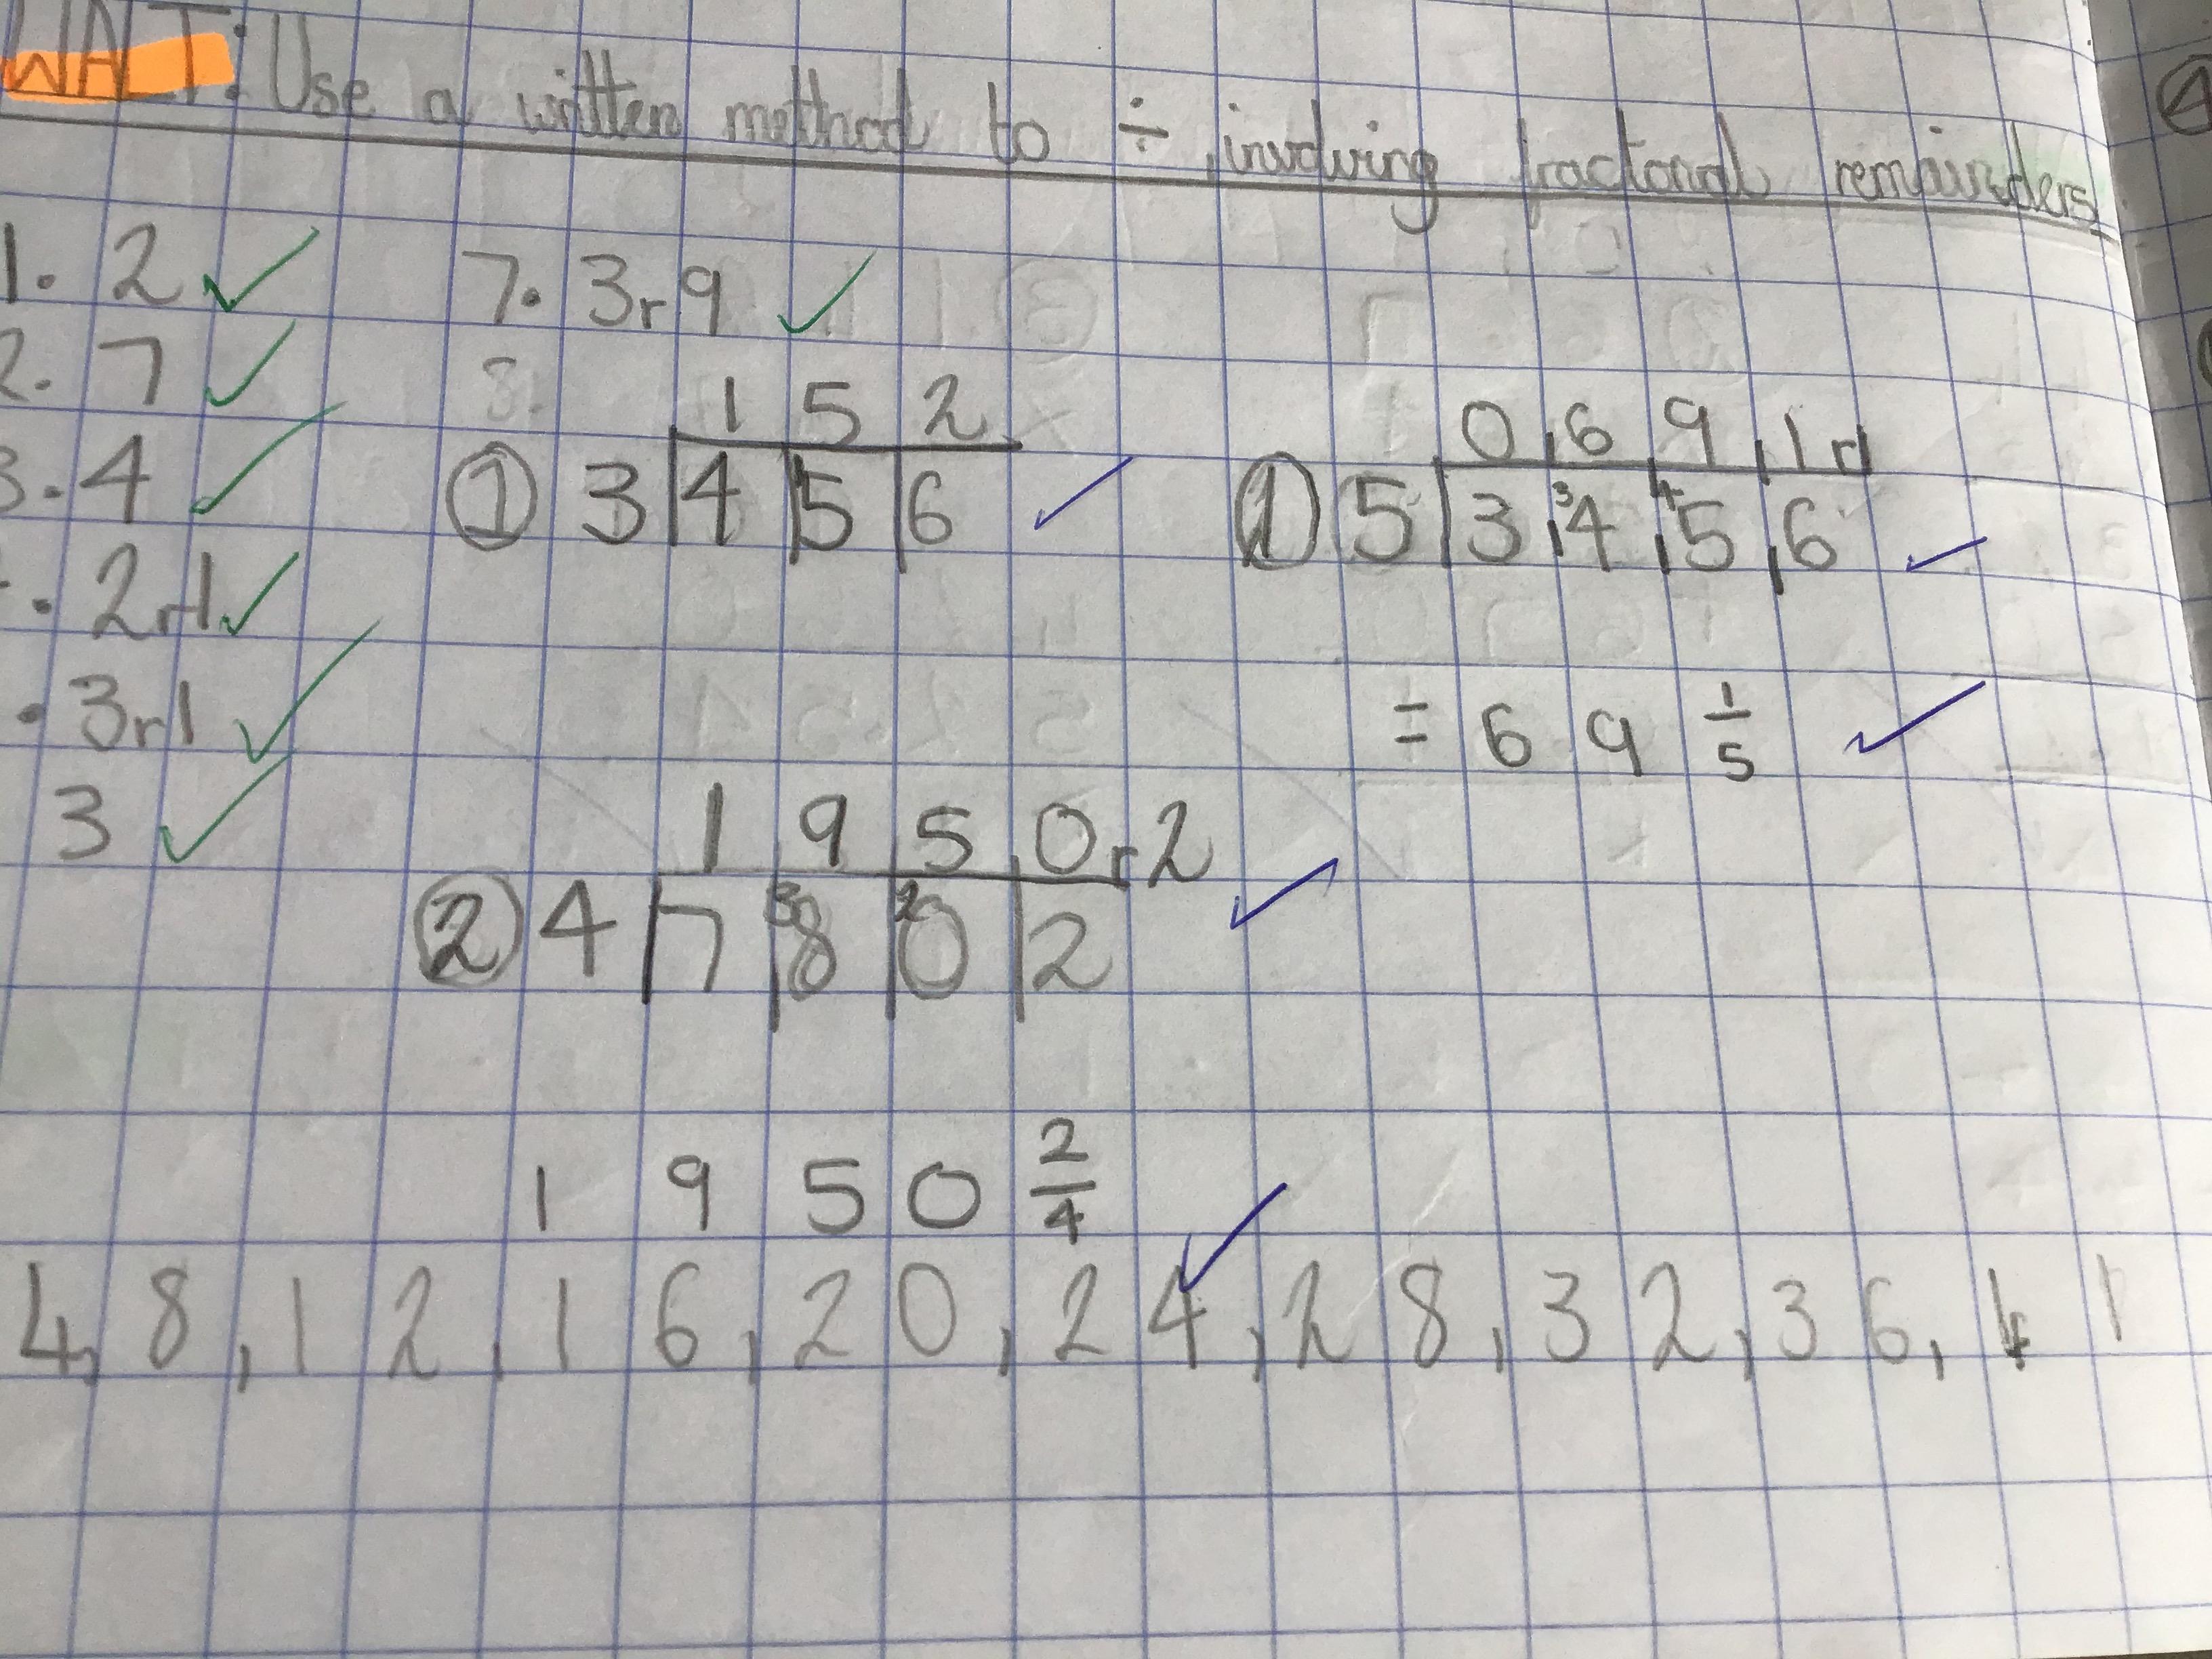 WALT: Use a written method to ÷, involving fractional remainders
1. 2
2. 7
3. 4
. 2r1
. 3r1
3
7. 3r9
8.
1 5 2
① 3 4 5 6
0 6 9 1 r1
① 5 3 ³4 ⁴5 6
= 6 9 1/5
1 9 5 0 r2
② 4 7 ³8 ²0 2
1 9 5 0 2/4
4, 8, 12, 16, 20, 24, 28, 32, 36,